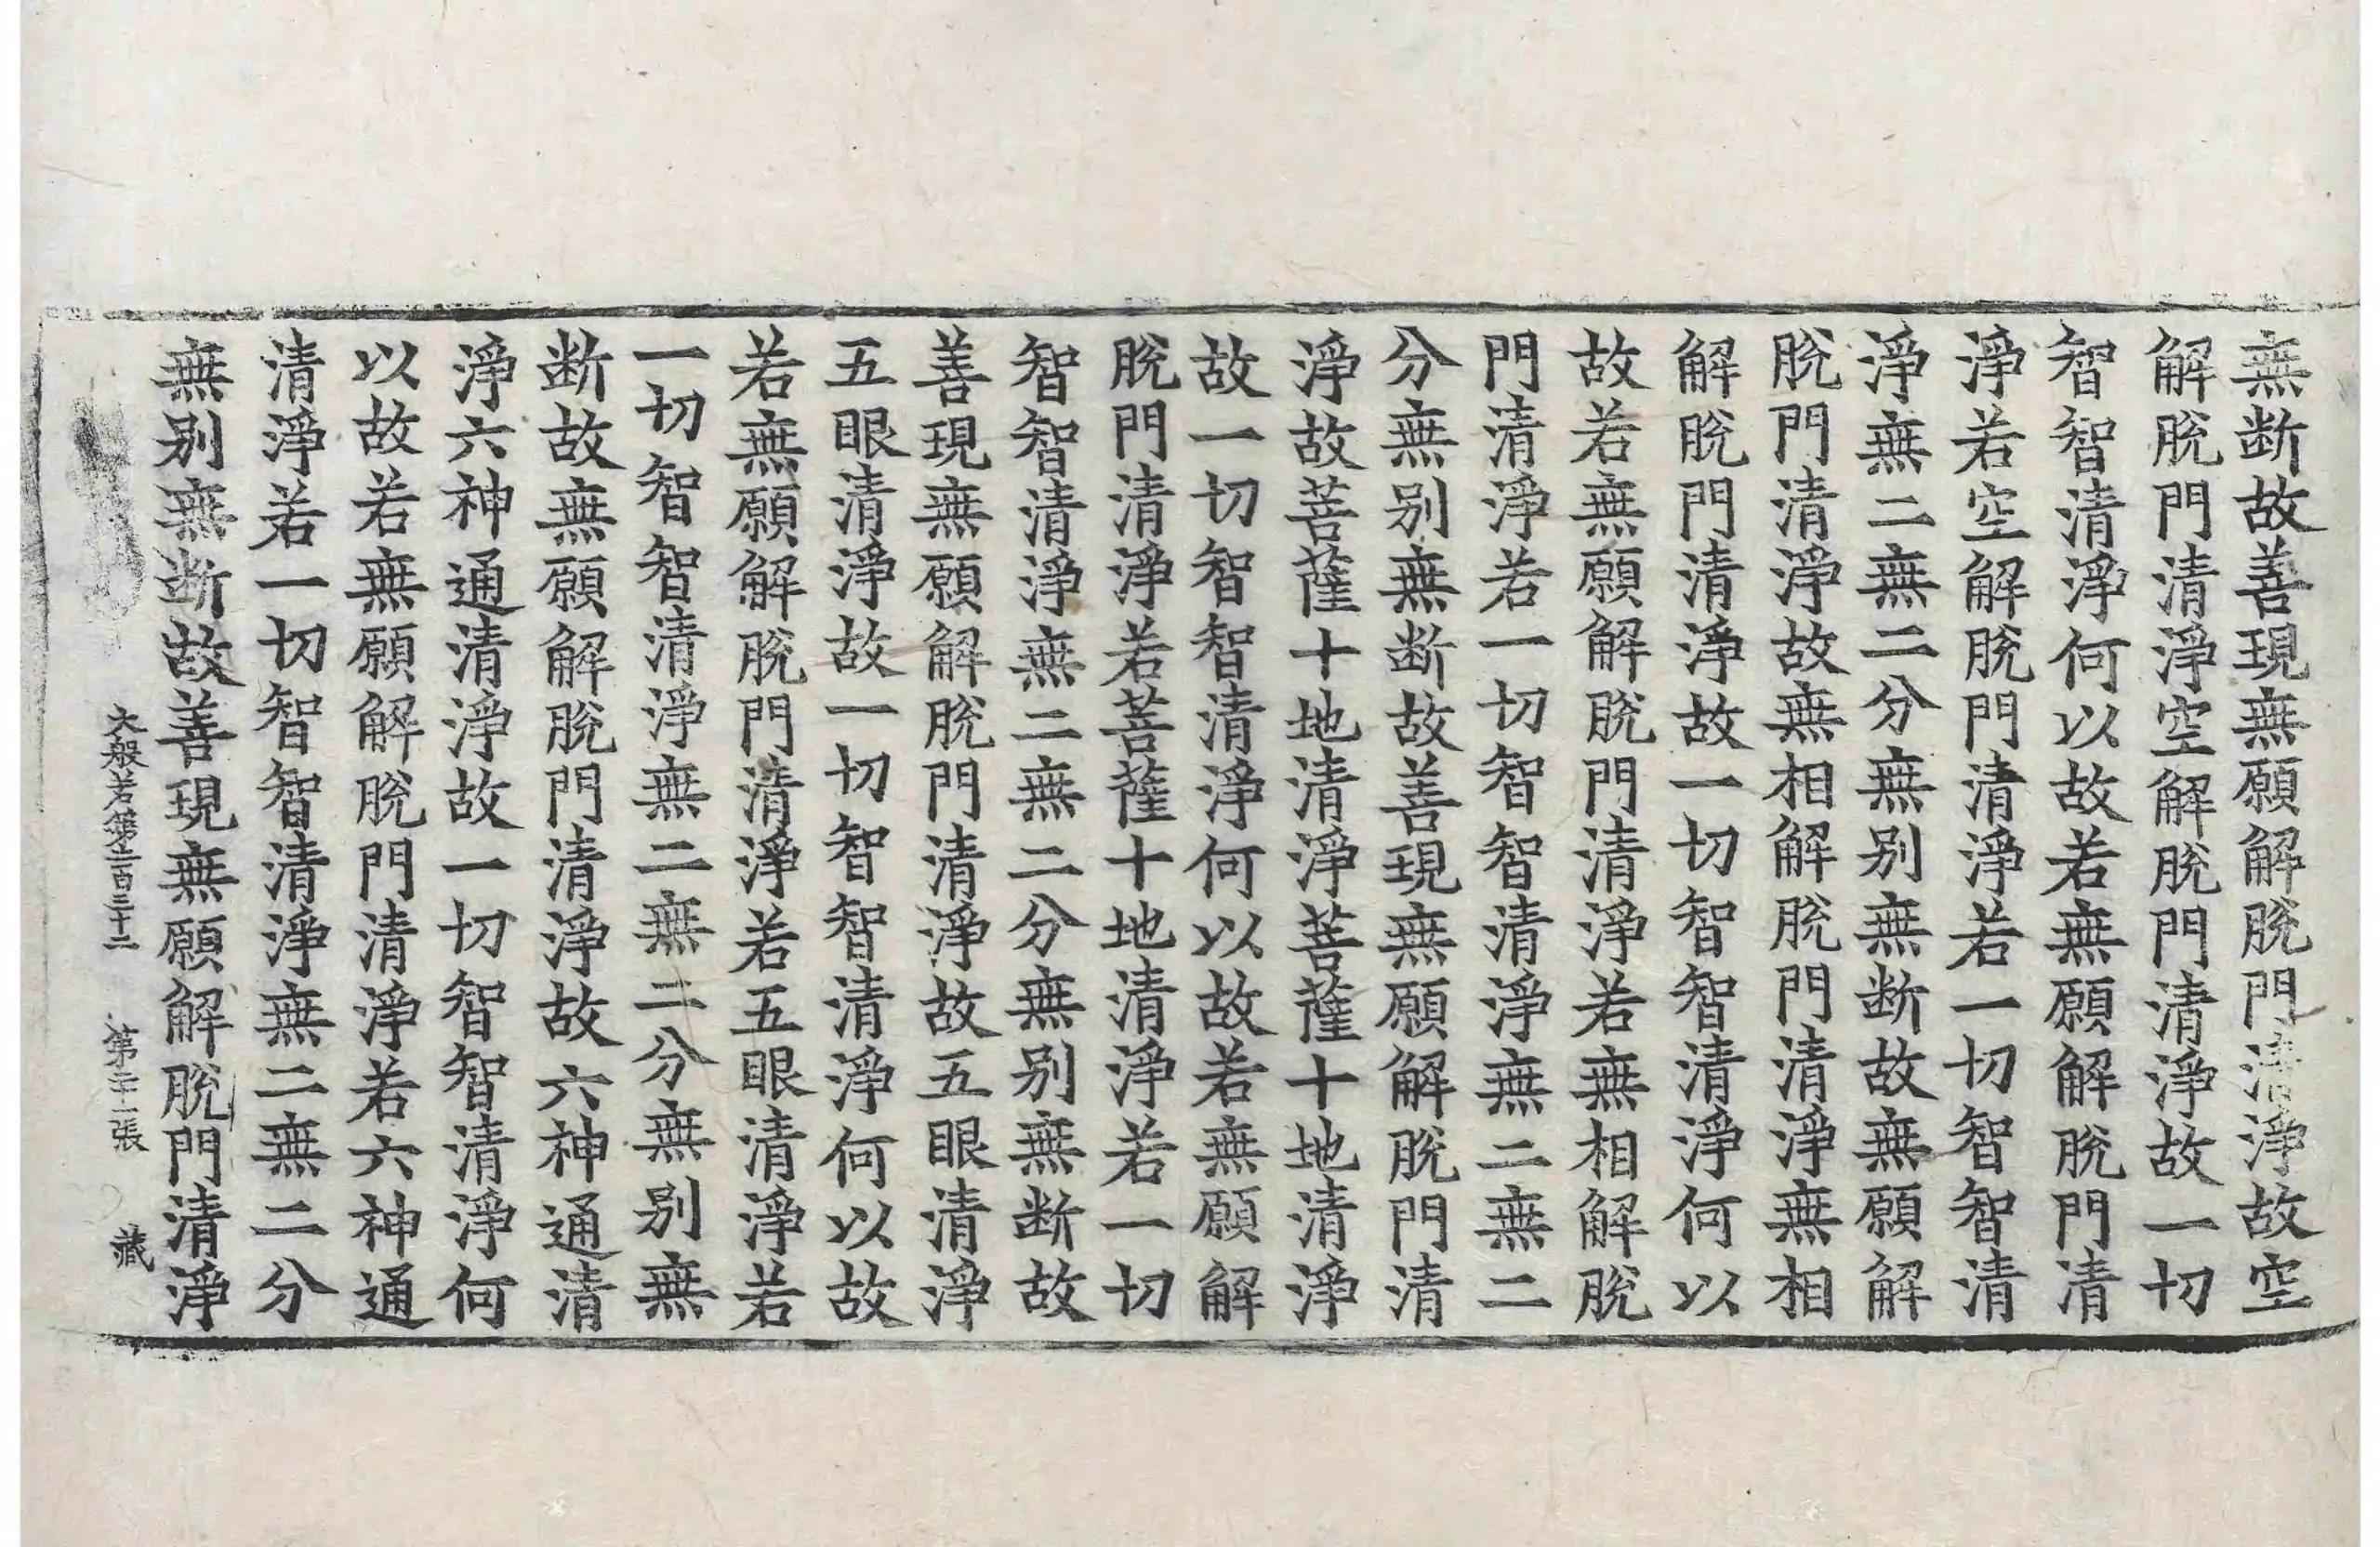 無断故善現無願解脫門清淨故空
解脫門清淨空解脫門清淨故一切
智智清淨何以故若無願解脫門清
淨若空解脫門清淨若一切智智清
淨無二無二分無别無断故無願解
脫門清淨故無相解脫門清淨無相
解脫門清淨故一切智智清淨何以
故若無願解脫門清淨若無相解脫
門清淨若一切智智清淨無二無二
分無别無断故善現無願解脫門清
淨故菩薩十地清淨菩薩十地清淨
故一切智智清淨何以故若無願解
脫門清淨若菩薩十地清淨若一切
智智清淨無二無二分無别無断故
善現無願解脫門清淨故五眼清淨
五眼清淨故一切智智清淨何以故
若無願解脫門清淨若五眼清淨若
一切智智清淨無二無二分無别無
断故無願解脫門清淨故六神通清
淨六神通清淨故一切智智清淨何
以故若無願解脫門清淨若六神通
清淨若一切智智清淨無二無二分
無别無断故善現無願解脫門清淨
大般若第二百三十二 第二十一張 藏